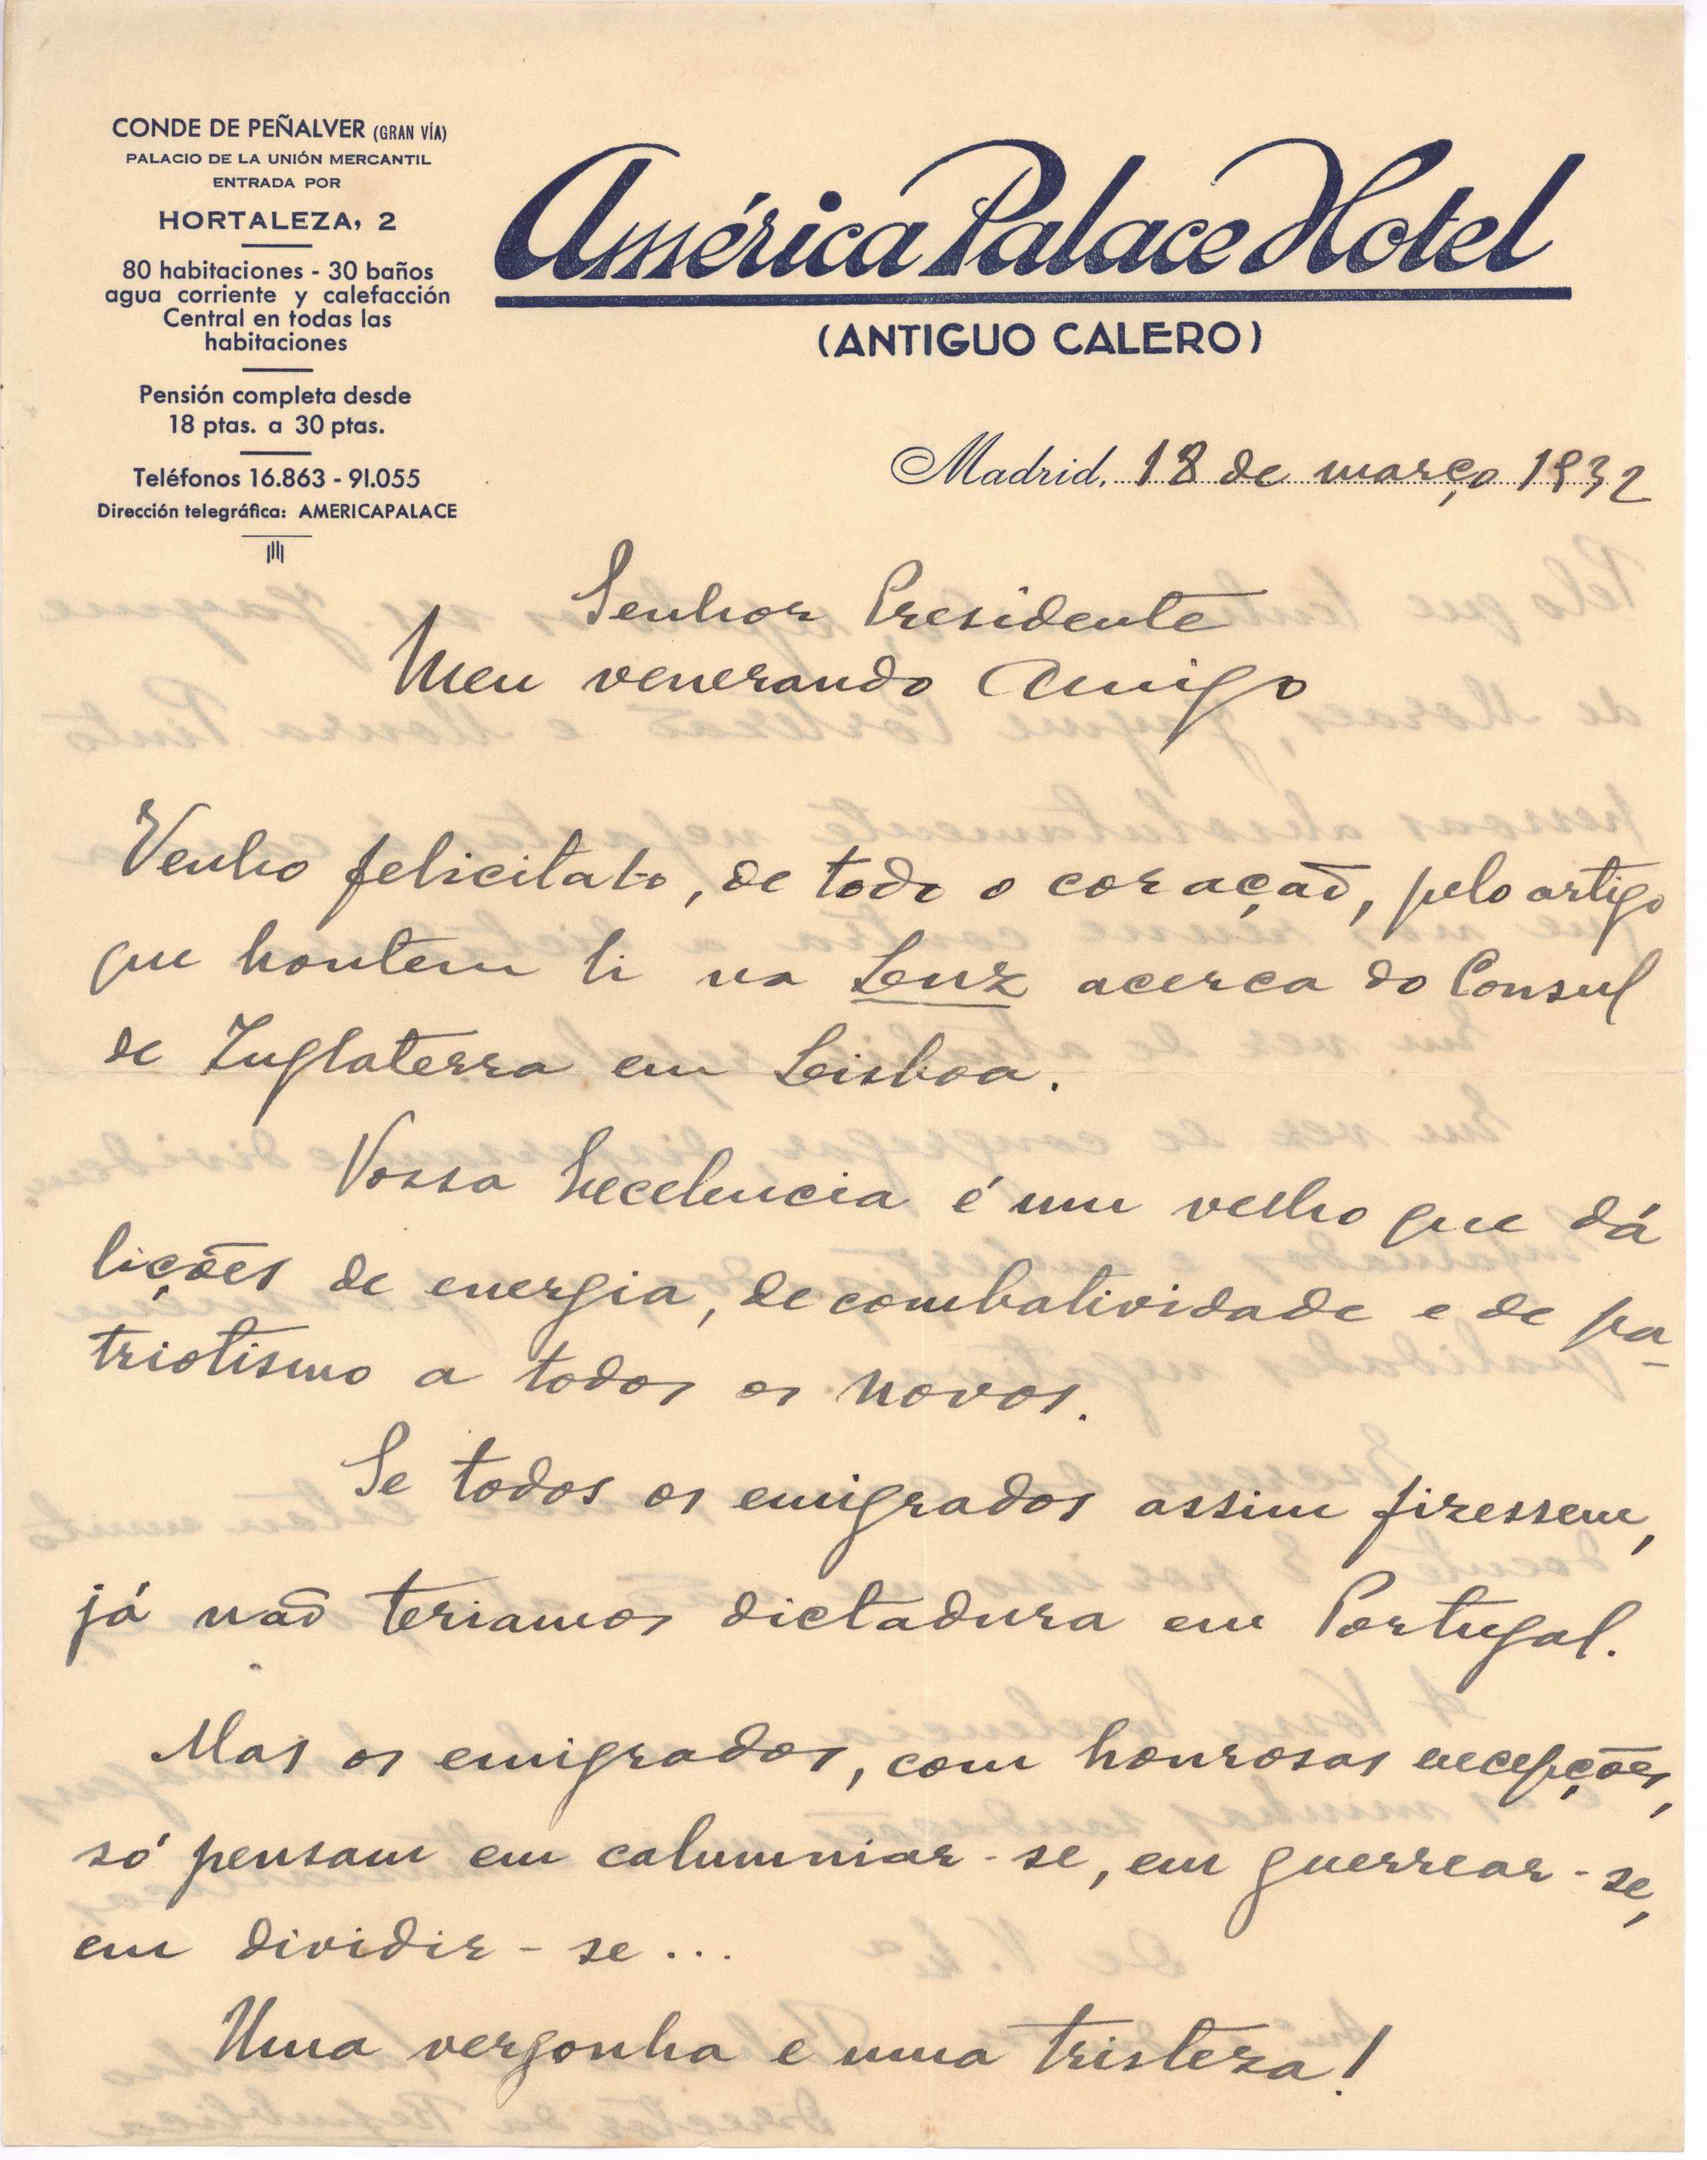 CONDE DE PEÑALVER (GRAN VÍA)
PALACIO DE LA UNIÓN MERCANTIL
ENTRADA POR
HORTALEZA, 2
80 habitaciones - 30 baños
agua corriente y calefacción
Central en todas las
habitaciones
Pensión completa desde
18 ptas. a 30 ptas.
Teléfonos 16.863 - 91.055
Dirección telegráfica: AMERICAPALACE
América Palace Hotel
(ANTIGUO CALERO)
Madrid, 18 de março 1932
Senhor Presidente
Meu venerando Amigo
Venho felicital-o, de todo o coração, pelo artigo
que hontem li na Luz acerca do Consul
de Inglaterra em Lisboa.
Vossa Excelencia é um velho que dá
lições de energia, de combatividade e de pa-
triotismo a todos os novos.
Se todos os emigrados assim fizessem,
já não teriamos dictadura em Portugal.
Mas os emigrados, com honrosas excepções,
só pensam em calumniar-se, em guerrear-se,
em dividir-se...
Uma vergonha e uma tristeza!